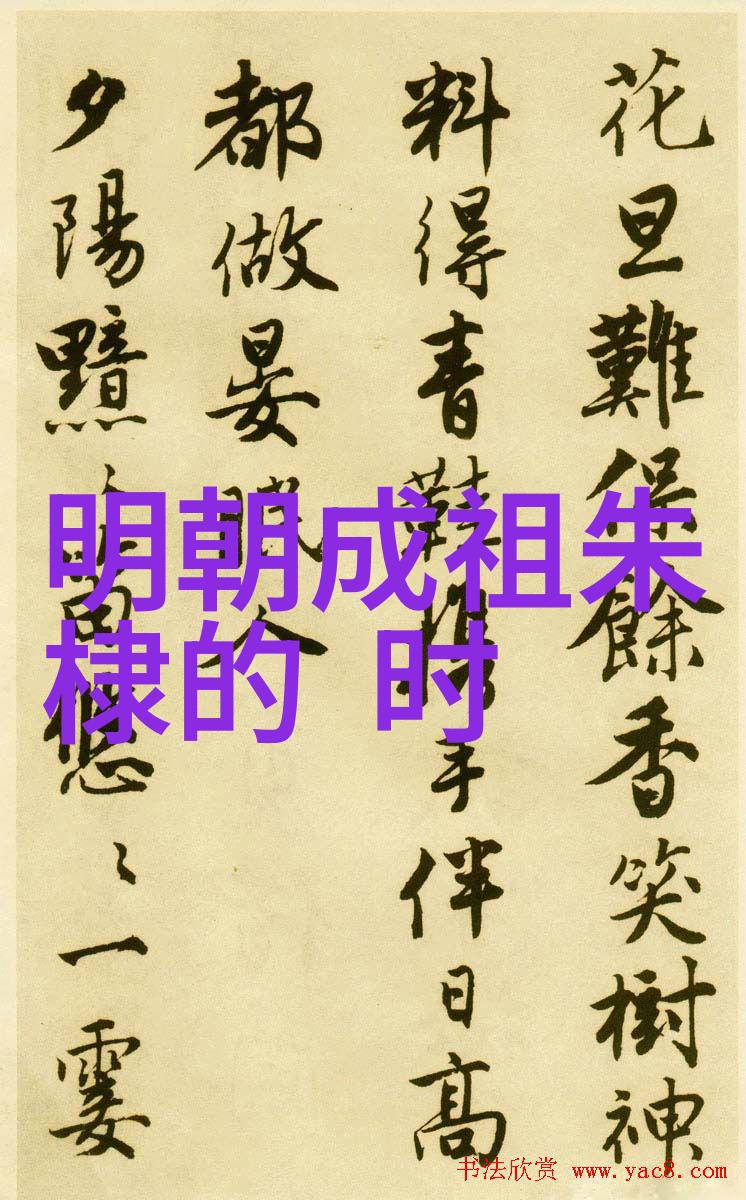 花旦難保餘香笑樹神
料得青鞋携手伴日高
都做晏眠人
夕陽黯〻笛悠〻一霎
明朝成祖朱
棣的 时
书法欣赏 www.yac8.com